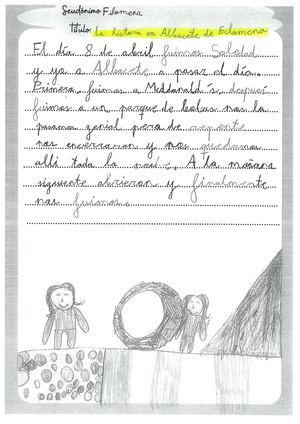 Seudónimo Filomena
Título: La historia en Albacete de Filomena
El día 8 de abril fuimos Soledad
y yo a Albacete a pasar el día.
Primero, fuimos a Mcdonald´s después
fuimos a un parque de bolas nos lo
pasamos genial pero de repente
nos encerraron y nos quedamos
allí toda la noche. A la mañana
siguiente abrieron y finalmente
nos fuimos.